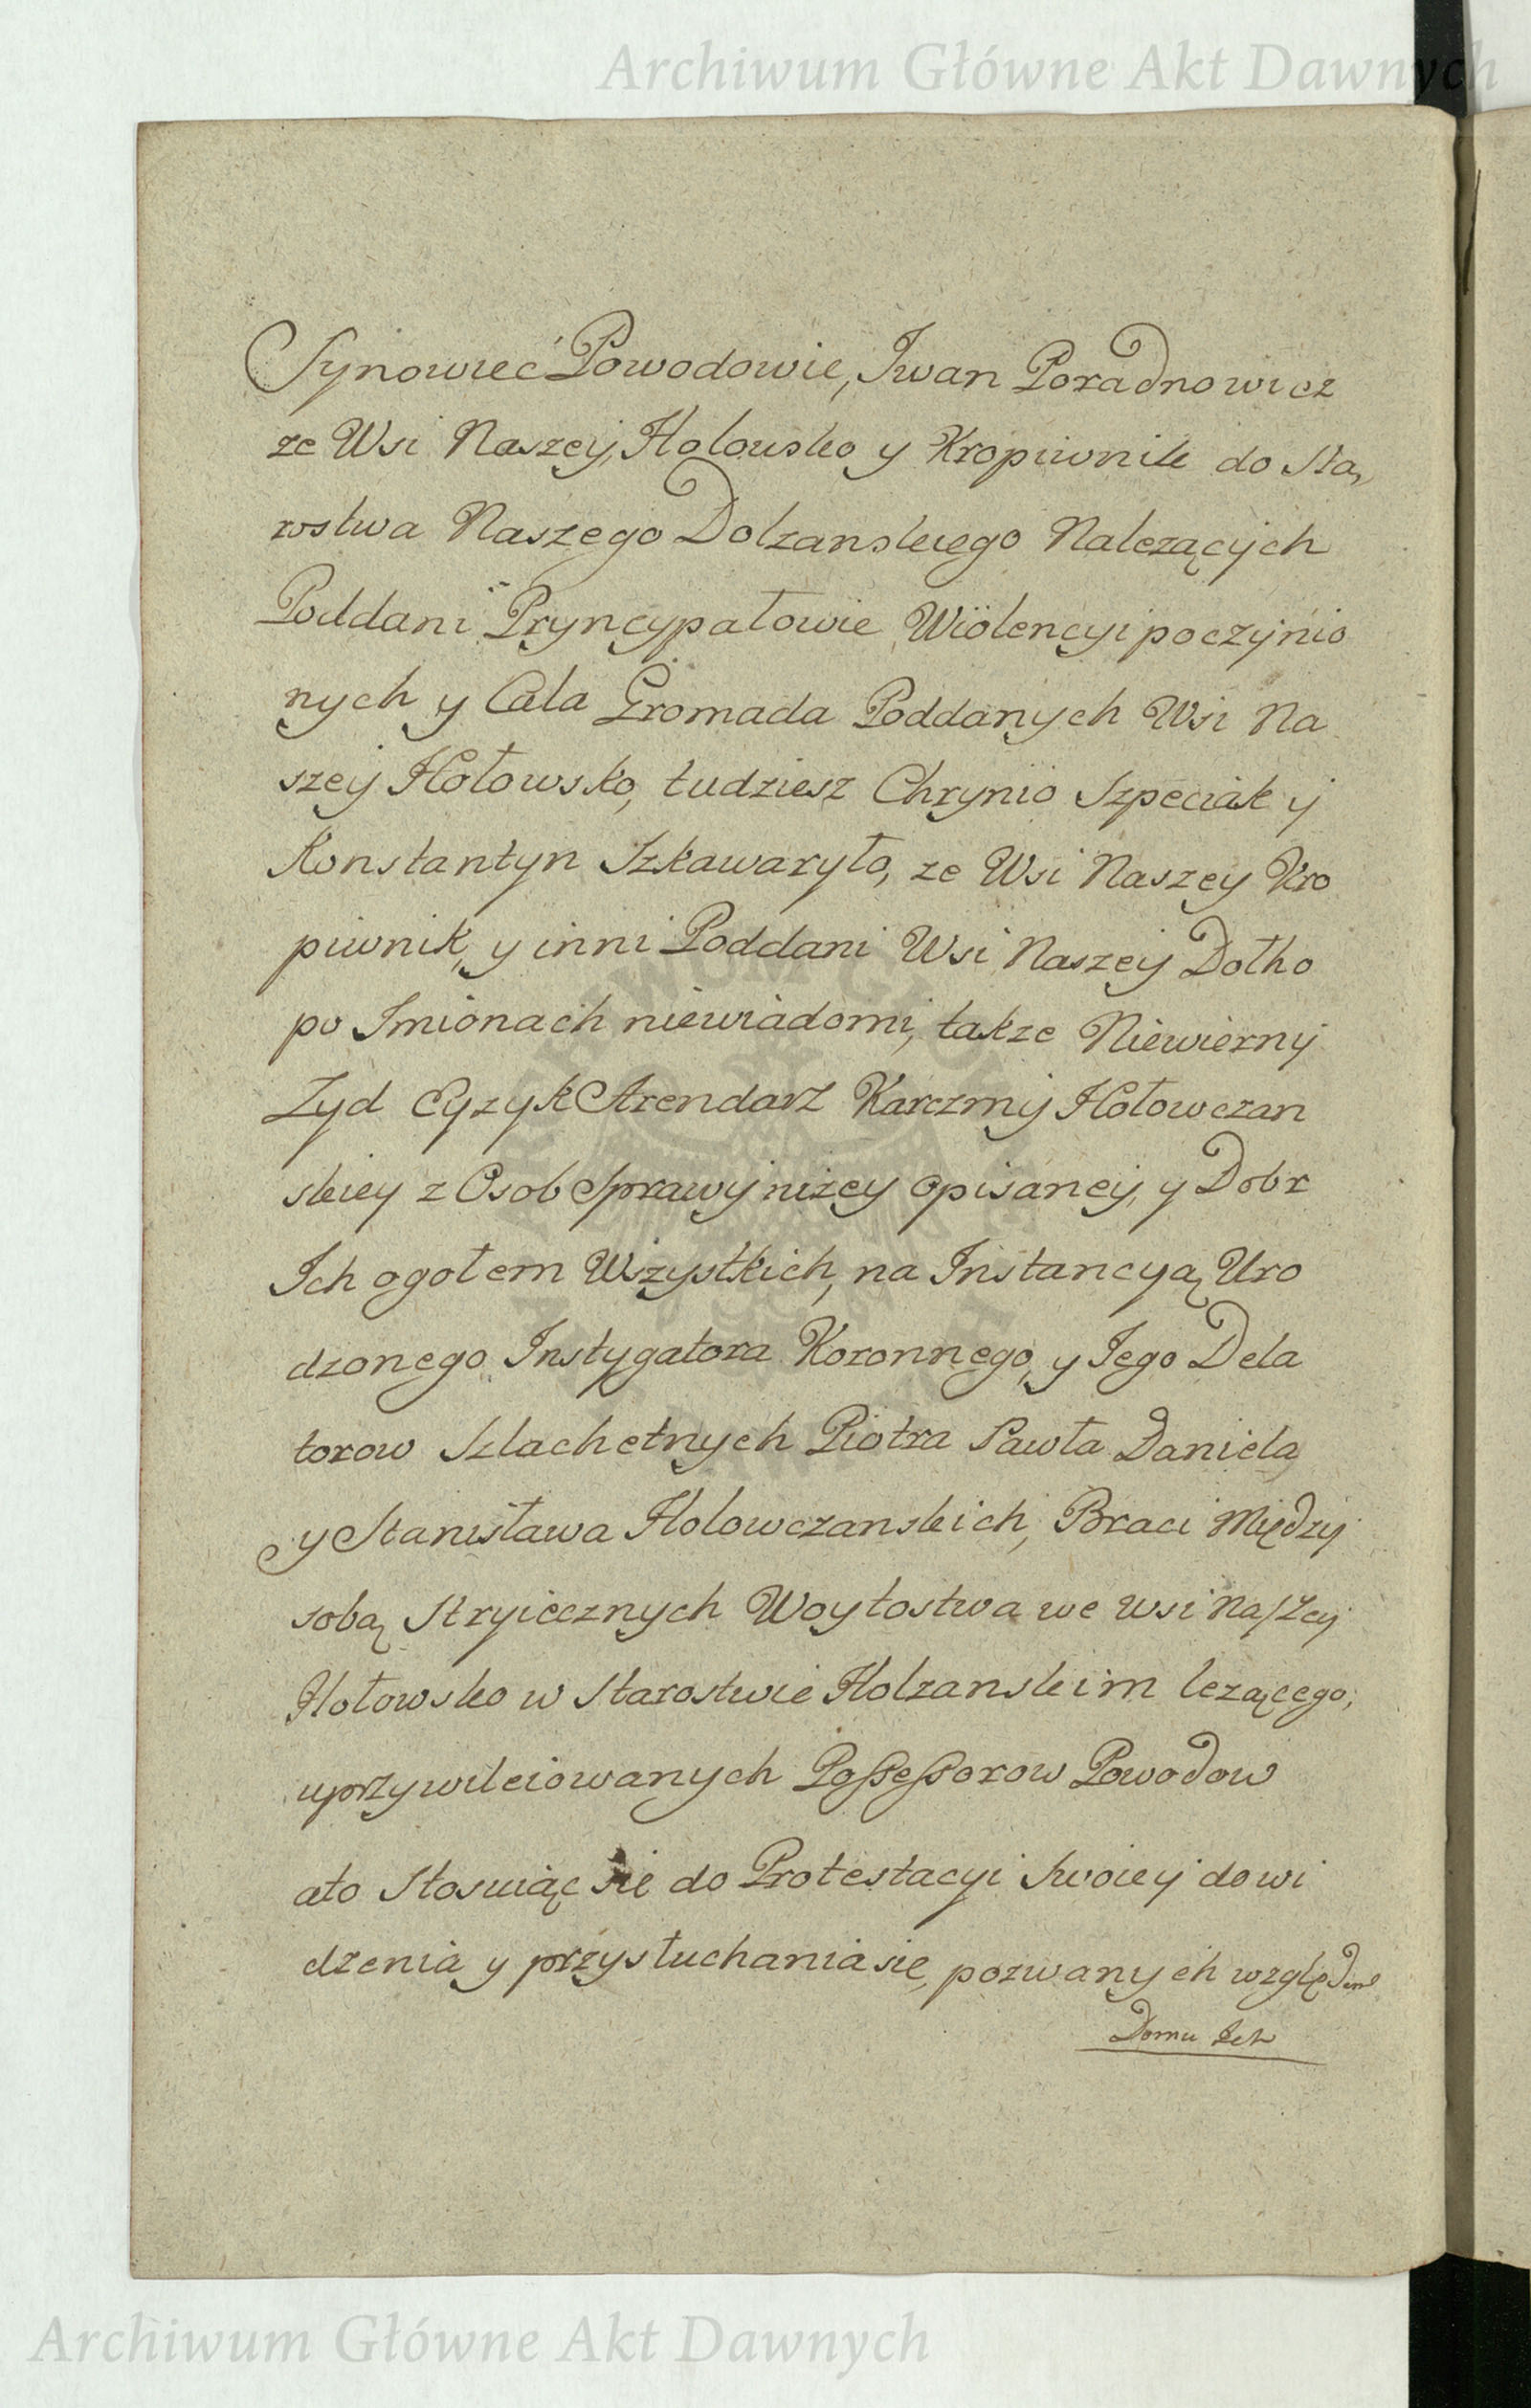 Archiwum Główne Akt Dawnych
Synowieć Powodowie, Iwan Poradnowicz
ze Wsi Naszey, Holowsko y Kropiwnik do Sta,
rostwa Naszego Dolzanskiego Nalezących
Poddani Pryncypałowie Wiolencyi poczynio
nych y Cala Gromada Poddanych Wsi Na
szey Hołowsko, tudziesz Chrynio Szpeciak y
Konstantyn Szkawaryło, ze Wsi Naszey Kro
piwnik, y inni Poddani Wsi Naszey Dołho
po Imionach niewiadomi, takze Niewierny
Zyd Cyzyk Arendarz Karczmy Hołowczan
skiey z Osob Sprawy nizey opisaney, y Dobr
Ich ogołem Wszystkich, na Instancyą Uro
dzonego Instygatora Koronnego, y Iego Dela
torow Szlachetnych Piotra Pawła Daniela
y Stanisława Holowczanskich, Braci Między
sobą Stryiecznych Woytostwa we wsi Naszey
Hołowsko w Starostwie Holzanskim lezącego,
uprzywileiowanych Possessorow Powodow
ato Stosuiąc sie do Protestacyi Swoiey dowi
dzenia y przysłuchania sie, pozwanych względem
Domu Ich
Archiwum Główne Akt Dawnych